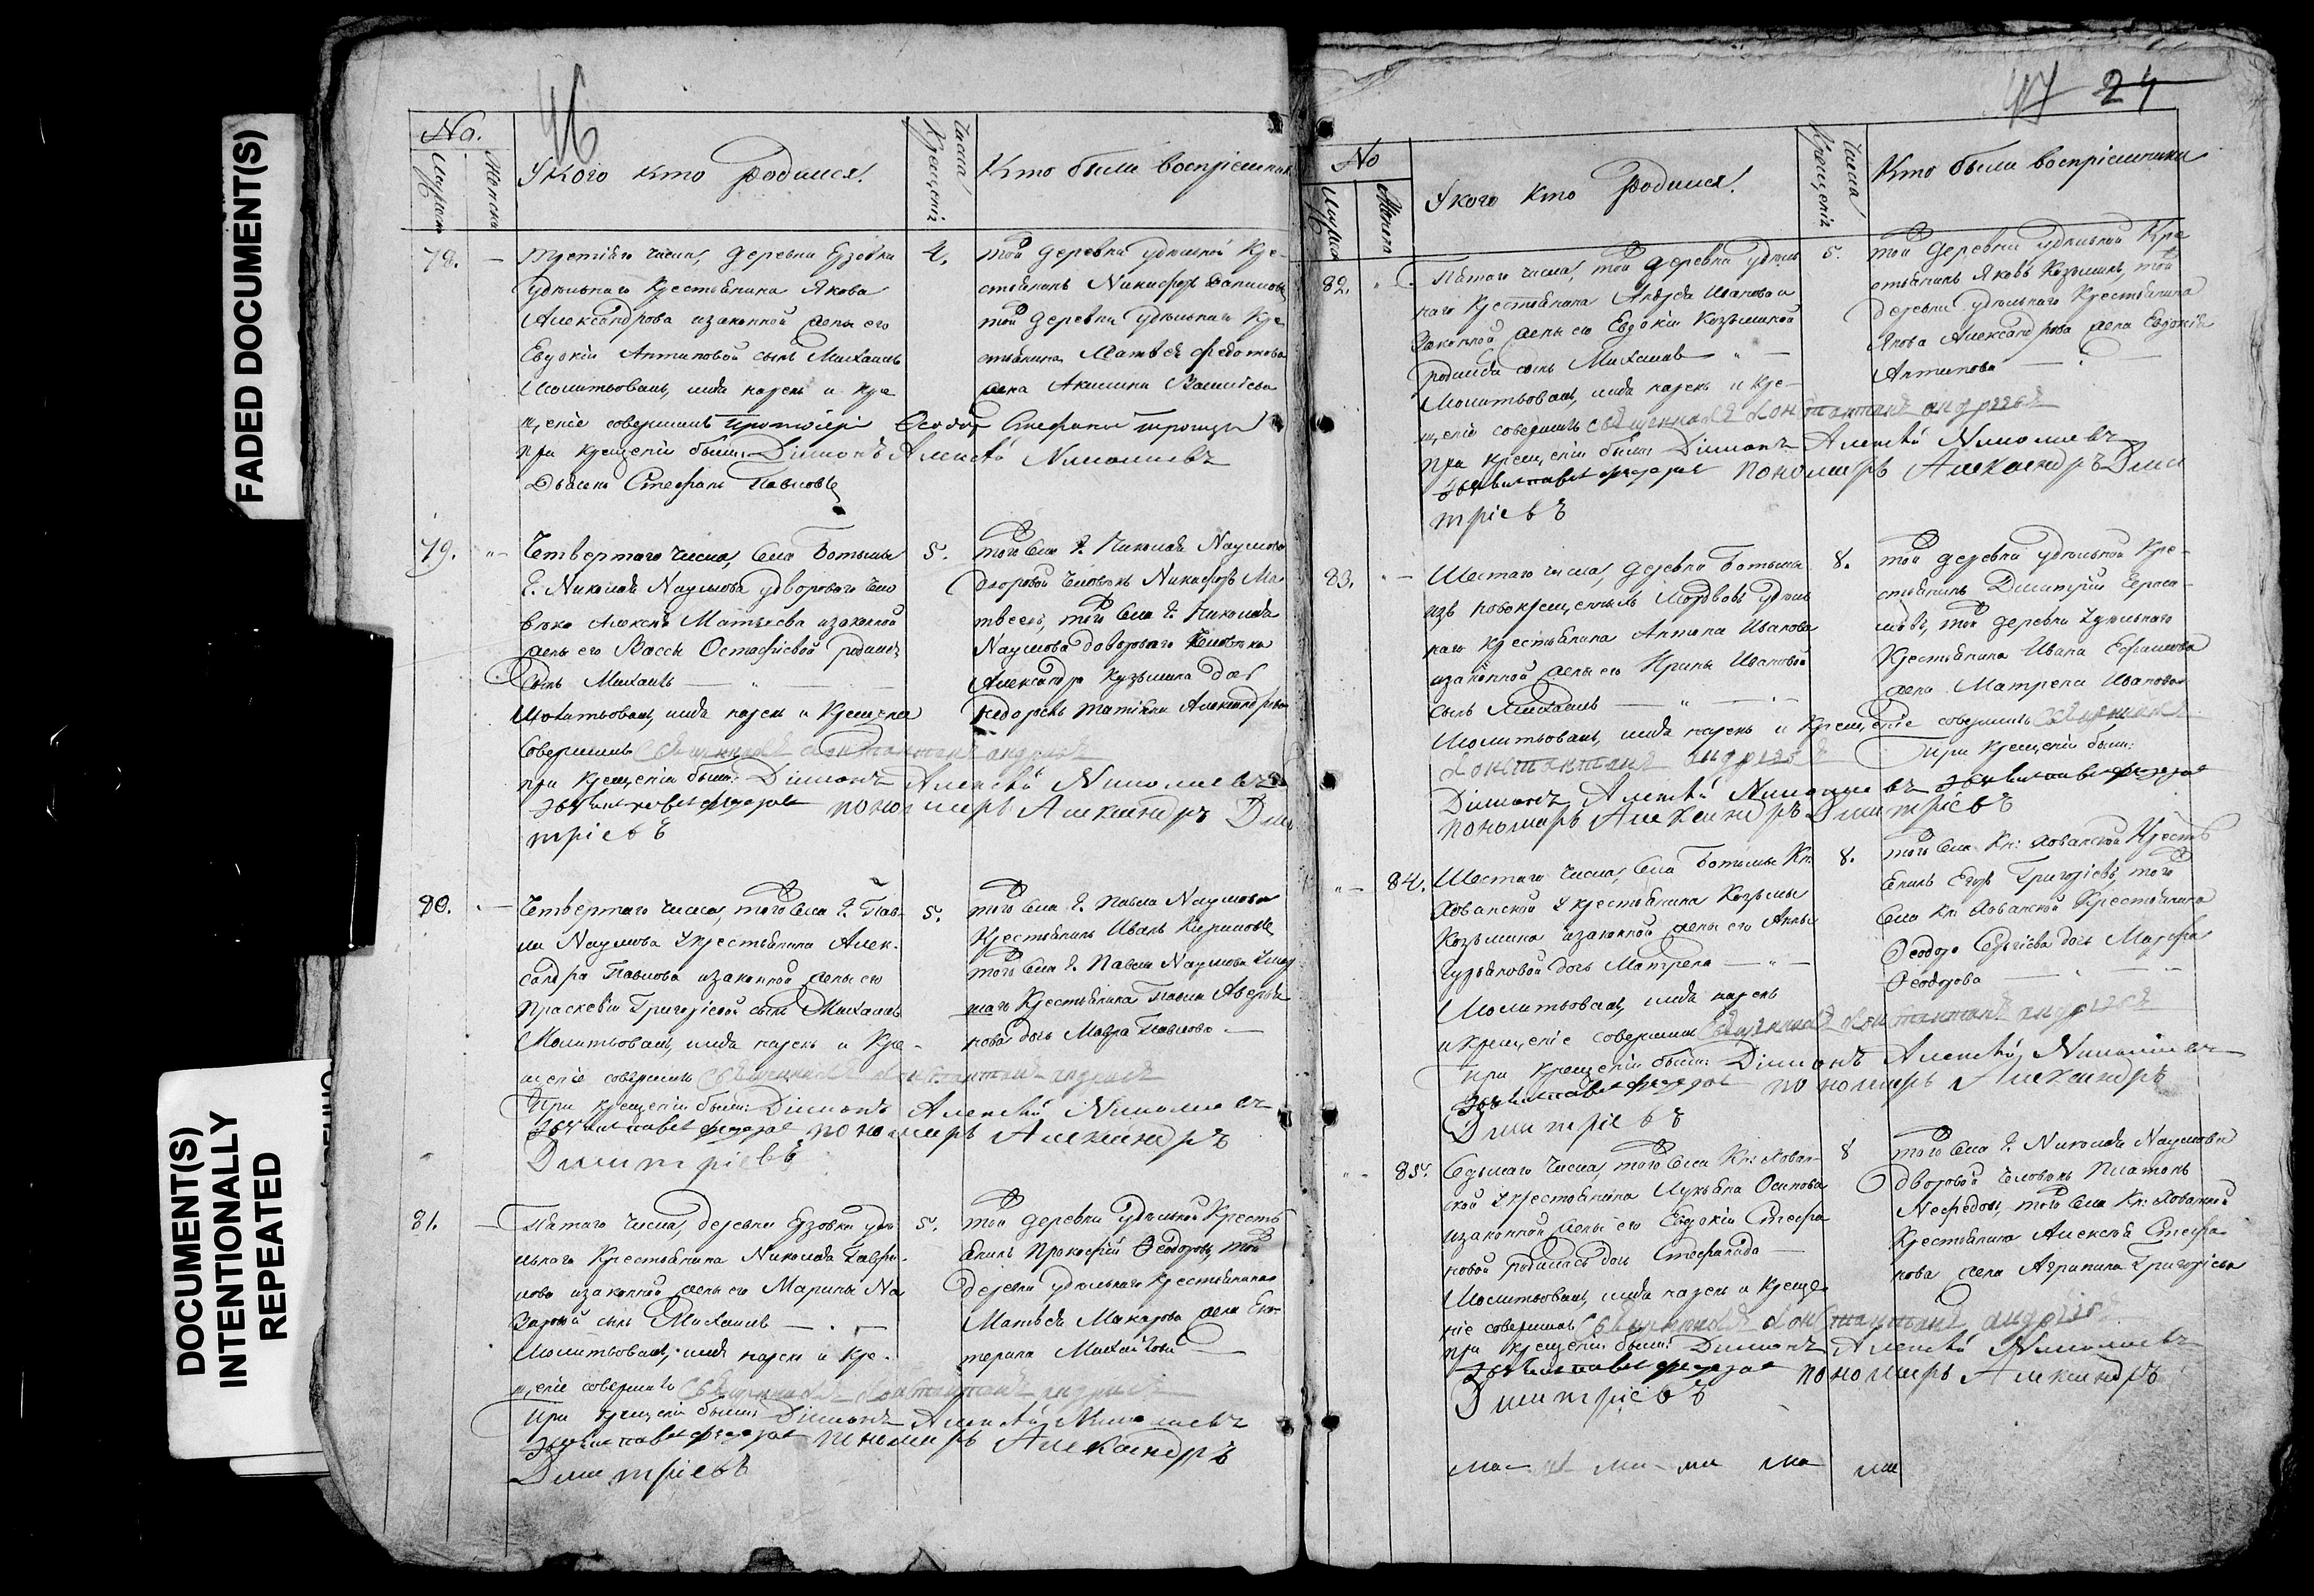 FADED DOCUMENT(S)
DOCUMENT(S)
INTENTIONALLY
REPEATED
46
No.
Мужеск
Женска
У кого кто родился.
Числа
Крещенія
Кто были воспріемники
78.
третьяго числа, деревни Ерзовки
удѣльнаго крестьянина Якова
Александрова и законной жены его
Евдокіи Антиповой сынъ Михаилъ
Молитвовалъ, имя нарекъ и кре
щеніе совершилъ протоіерей
При крещеніи были: Діаконъ Алексѣй Николаевъ
Дьячекъ Стефанъ Павловъ
4.
той деревни удѣльной кре-
стьянинъ Никифоръ Даниловъ
той деревни удѣльнаго кре
стьянина Матвѣя Федотова
жена Акилина Васильева
79.
Четвертаго числа, села Ботьмы
Г. Николая Наумова у двороваго чело
вѣка Алексѣя Матвѣева и законной
жены его Вассы Остафьевой родился
сынъ Михаилъ
Молитвовалъ, имя нарекъ и крещеніе
совершилъ священникъ Константинъ Андреевъ
при крещеніи были: Діаконъ Алексѣй Николаевъ
пономарь Александръ Дми
тріевъ
5.
того села Г. Николая Наумова
дворовой человѣкъ Никифоръ Ма
твеевъ, того села Г. Николая
Наумова двороваго человѣка
Александра Кузьмина
Татіана Александрова
80.
Четвертаго числа, того села Г. Пав-
ла Наумова у крестьянина Алек-
сандра Павлова и законной жены его
Прасковіи Григорьевой сынъ Михаилъ
Молитвовалъ, имя нарекъ и кре-
щеніе совершилъ священникъ Константинъ Андреевъ
При крещеніи были: Діаконъ Алексѣй Николаевъ
пономарь Александръ
Димитріевъ
5.
того села Г. Павла Наумова
крестьянинъ Иванъ Кириловъ
того села Г. Павла Наумова
крестьянина Павла Аверья
нова дочь Мавра Павлова
81.
Пятаго числа, деревни Ерзовки удѣ
льнаго крестьянина Николая Гаври-
лова и законной жены его Марины На
заровой сынъ Михаилъ
Молитвовалъ, имя нарекъ и кре-
щеніе совершилъ священникъ Константинъ Андреевъ
При крещеніи были: Діаконъ Алексѣй Николаевъ
пономарь Александръ
Димитріевъ
5.
той деревни удѣльной кресть
янинъ Прокофій Ѳеодоровъ, той
деревни удѣльнаго крестьянина
Матвѣя Макарова жена Ека-
терина Михайлова
47 24
No
Мужеск
Женска
У кого кто родился.
Числа
Крещенія
Кто были воспріемники
82.
Пятаго числа, той деревни удѣль
наго крестьянина Андрея Иванова и
законной жены его Евдокіи Козьминой
родился сынъ Михаилъ
Молитвовалъ, имя нарекъ и кре-
щеніе совершилъ священникъ Константинъ Андреевъ
При крещеніи были: Діаконъ Алексѣй Николаевъ
пономарь Александръ Дми
тріевъ
5.
той деревни удѣльной кре
стьянинъ Яковъ Козьминъ, той
деревни удѣльнаго крестьянина
Якова Александрова жена Евдокія
Антипова
83.
Шестаго числа, деревни Ботьмы
изъ новокрещенныхъ мордвовъ удѣль
наго крестьянина Антона Иванова
и законной жены его Ирины Ивановой
сынъ Михаилъ
Молитвовалъ, имя нарекъ и крещеніе совершилъ священникъ
Константинъ Андреевъ При крещеніи были:
Діаконъ Алексѣй Николаевъ
пономарь Александръ Димитріевъ
8.
той деревни удѣльной кре-
стьянинъ Дмитрій Гераси-
мовъ, той деревни удѣльнаго
крестьянина Ивана Ефимова
жена Матрена Иванова
84.
Шестаго числа, села Ботьмы Кн:
Хованской у крестьянина Козьмы
Козьмина и законной жены его Анны
дочь Матрена
Молитвовалъ, имя нарекъ
и крещеніе совершилъ священникъ Константинъ Андреевъ
При крещеніи были: Діаконъ Алексѣй Николаевъ
пономарь Александръ
Димитріевъ
8.
того села Кн: Хованской кресть
янинъ Егоръ Григорьевъ, того
села Кн: Хованской крестьянина
Ѳеодора Сергіева дочь Марфа
Ѳеодорова
85.
Седьмаго числа, того села Кн: Хован-
ской у крестьянина Лукьяна Осипова
и законной жены его Евдокіи Стефа
новой родилась дочь Стефанида
Молитвовалъ, имя нарекъ и креще
ніе совершилъ священникъ Константинъ Андреевъ
При крещеніи были: Діаконъ Алексѣй Николаевъ
пономарь Александръ
Димитріевъ
8
того села Г. Николая Наумова
дворовой человѣкъ Платонъ
Нефедовъ, того села Кн: Хованской
крестьянина Алексѣя Стефа
нова жена Агрипина Григорьева